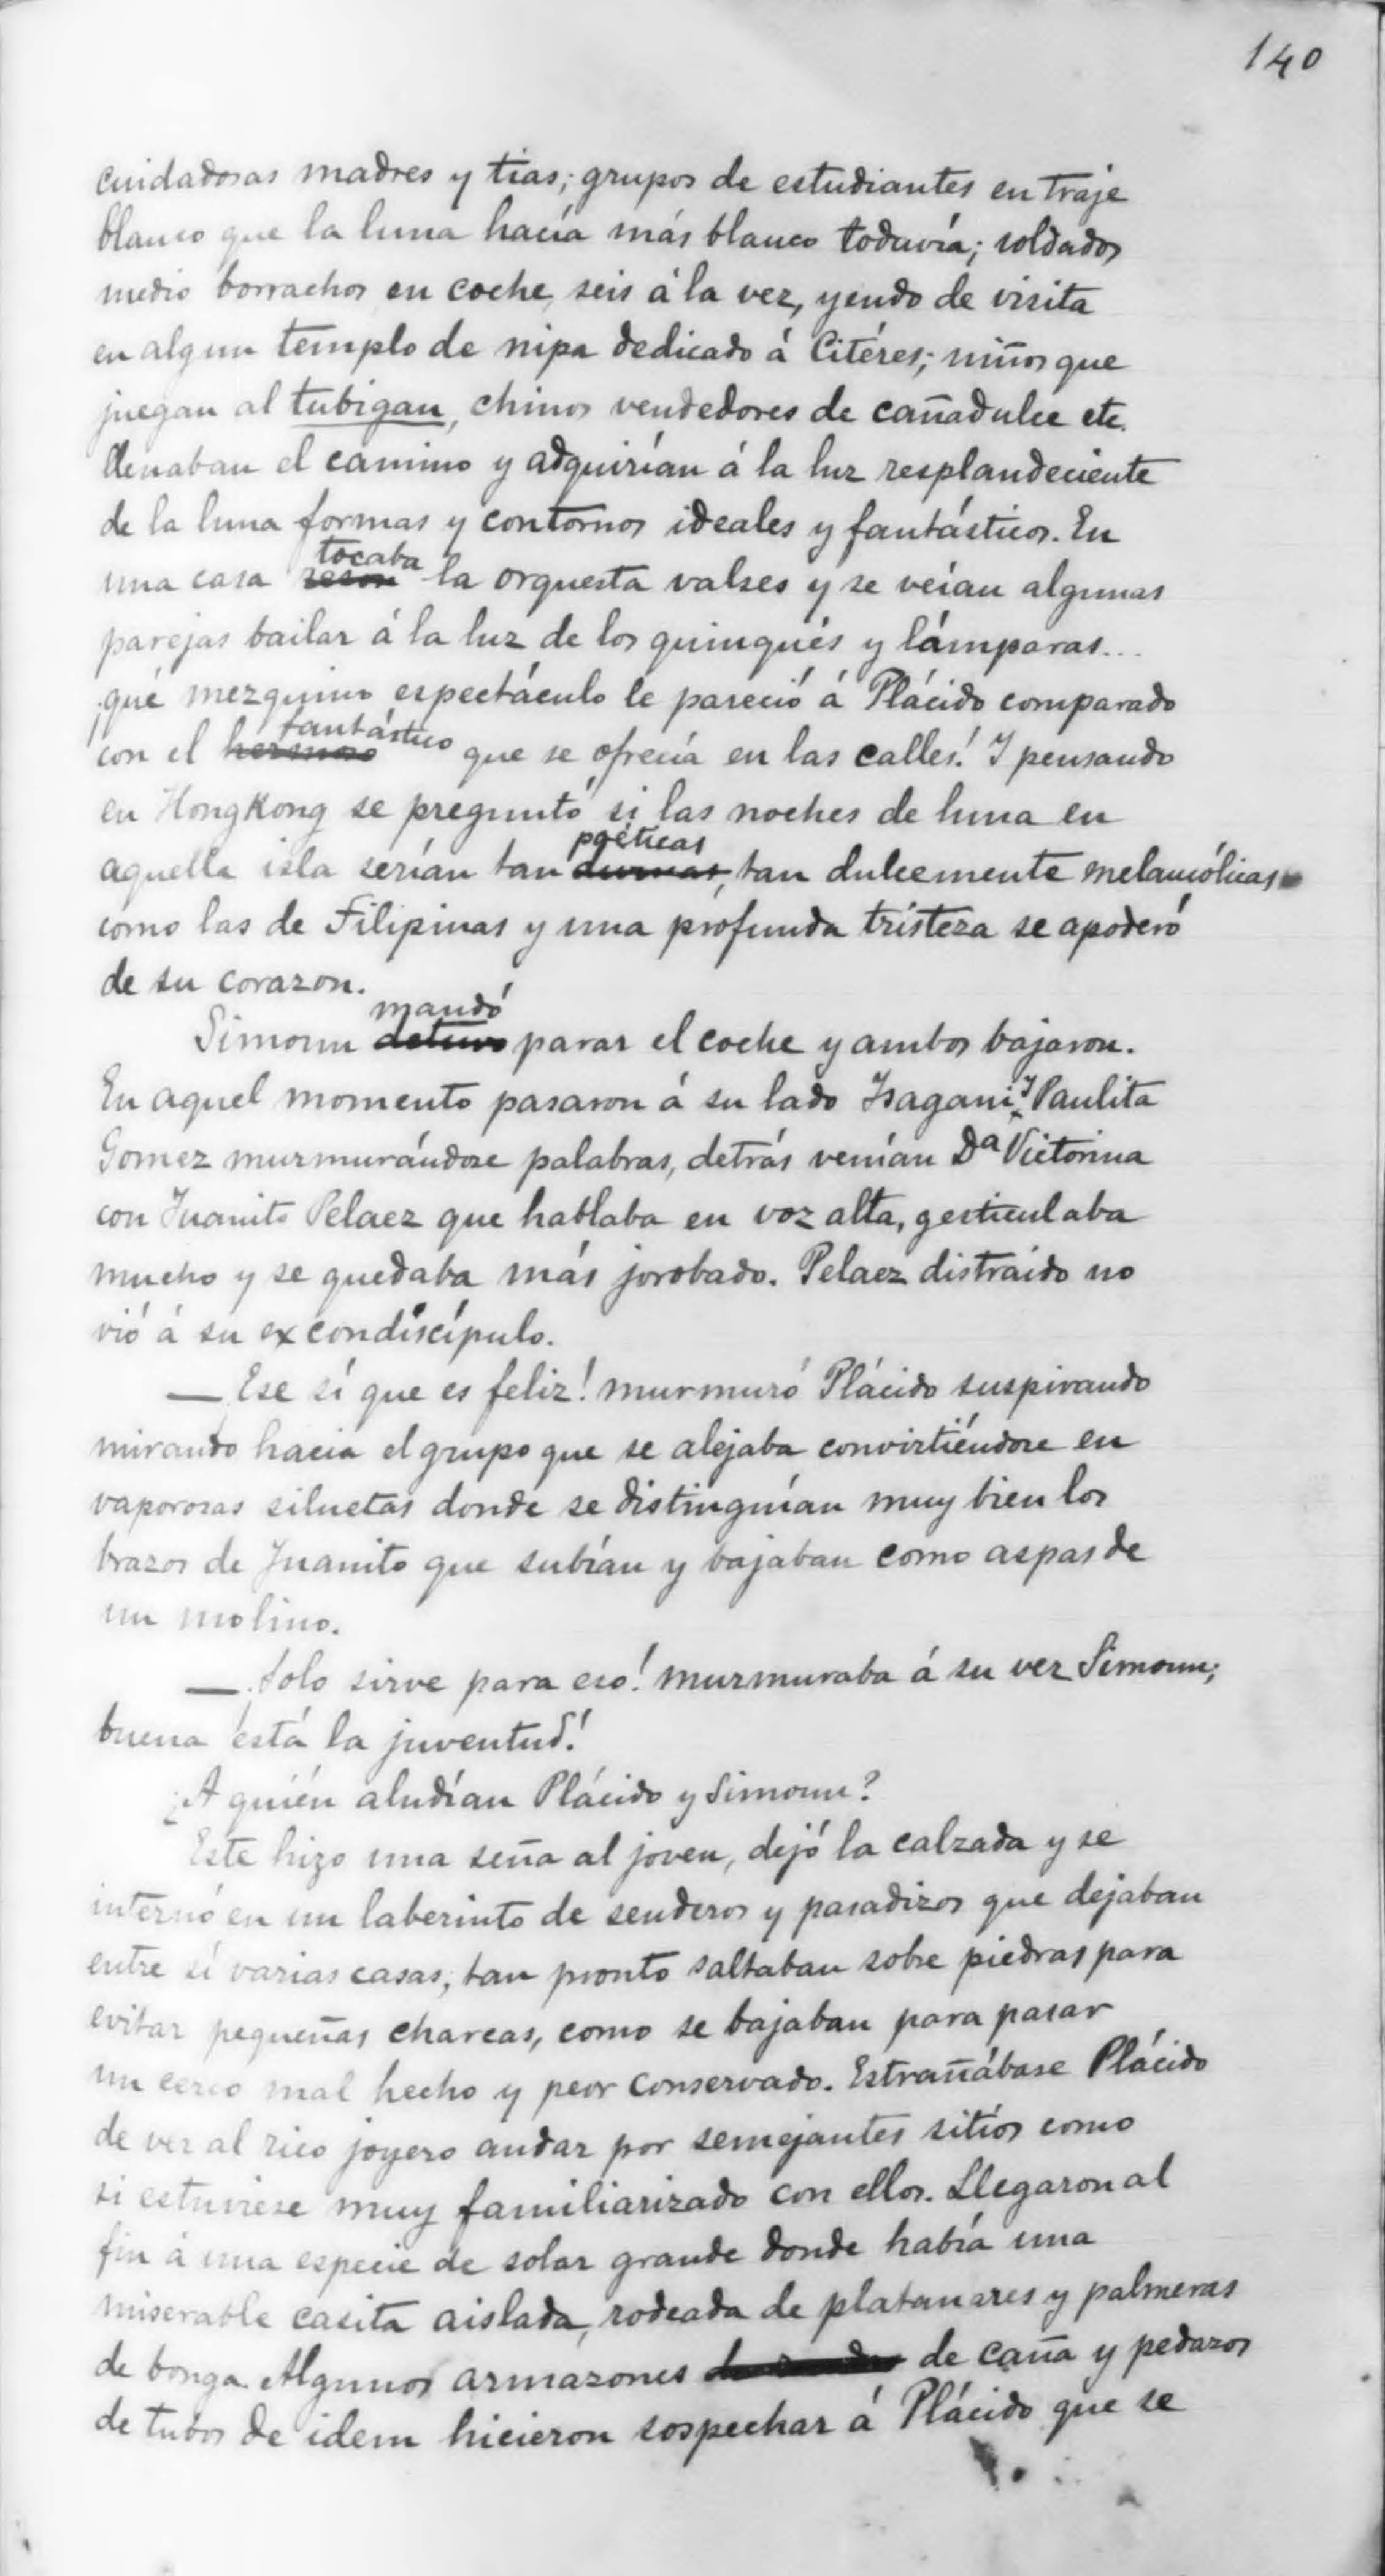 140
cuidadosas madres y tias; grupos de estudiantes en traje
blanco que la luna hacía más blanco todavía; soldados
medio borrachos en coche, seis á la vez, yendo de visita
en algun templo de nipa dedicado á Citéres; niños que
juegan al tubigan, chinos vendedores de cañadulce etc.
llenaban el camino y adquirían á la luz resplandeciente
de la luna formas y contornos ideales y fantásticos. En
una casa reson tocaba la orquesta valses y se veían algunas
parejas bailar á la luz de los quinqués y lámparas...
¡qué mezquino espectáculo le pareció á Plácido comparado
con el hermoso fantástico que se ofrecía en las calles! Y pensando
en HongKong se preguntó si las noches de luna en
aquella isla serían tan poéticas, tan dulcemente melancólicas
como las de Filipinas y una profunda tristeza se apoderó
de su corazon.
Simoun detuvo mandó parar el coche y ambos bajaron.
En aquel momento pasaron á su lado Isagani y Paulita
Gomez murmurándose palabras, detrás venían Dª Victorina
con Juanito Pelaez que hablaba en voz alta, gesticulaba
mucho y se quedaba más jorobado. Pelaez distraido no
vió á su excondiscípulo.
— ¡Ese sí que es feliz! murmuró Plácido suspirando
mirando hacia el grupo que se alejaba convirtiéndose en
vaporosas siluetas donde se distinguían muy bien los
brazos de Juanito que subían y bajaban como aspas de
un molino.
— ¡Solo sirve para eso! murmuraba á su vez Simoun;
buena está la juventud!
¿A quién aludían Plácido y Simoun?
Este hizo una seña al joven, dejó la calzada y se
internó en un laberinto de senderos y pasadizos que dejaban
entre sí varias casas; tan pronto saltaban sobre piedras para
evitar pequeñas charcas, como se bajaban para pasar
un cerco mal hecho y peor conservado. Estrañábase Plácido
de ver al rico joyero andar por semejantes sitios como
si estuviese muy familiarizado con ellos. Llegaron al
fin á una especie de solar grande donde había una
miserable casita aislada, rodeada de platanares y palmeras
de bonga. Algunos armazones de caña y pedazos
de tubos de idem hicieron sospechar á Plácido que se